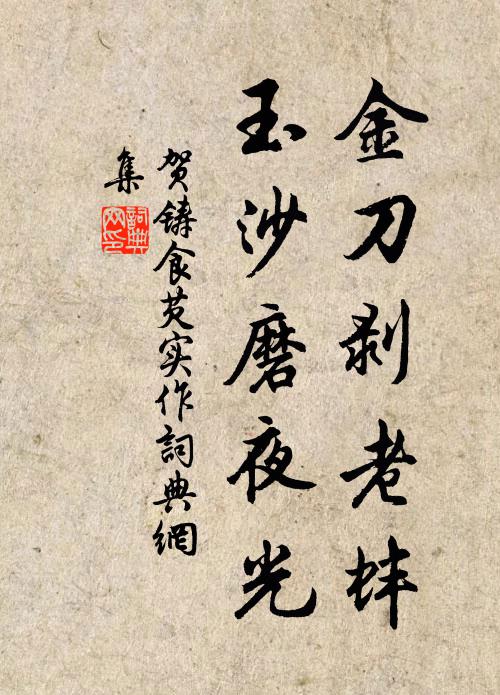 金刀剥老蚌
玉沙磨夜光
贺铸食芡实作詞典網
集
詞典网印